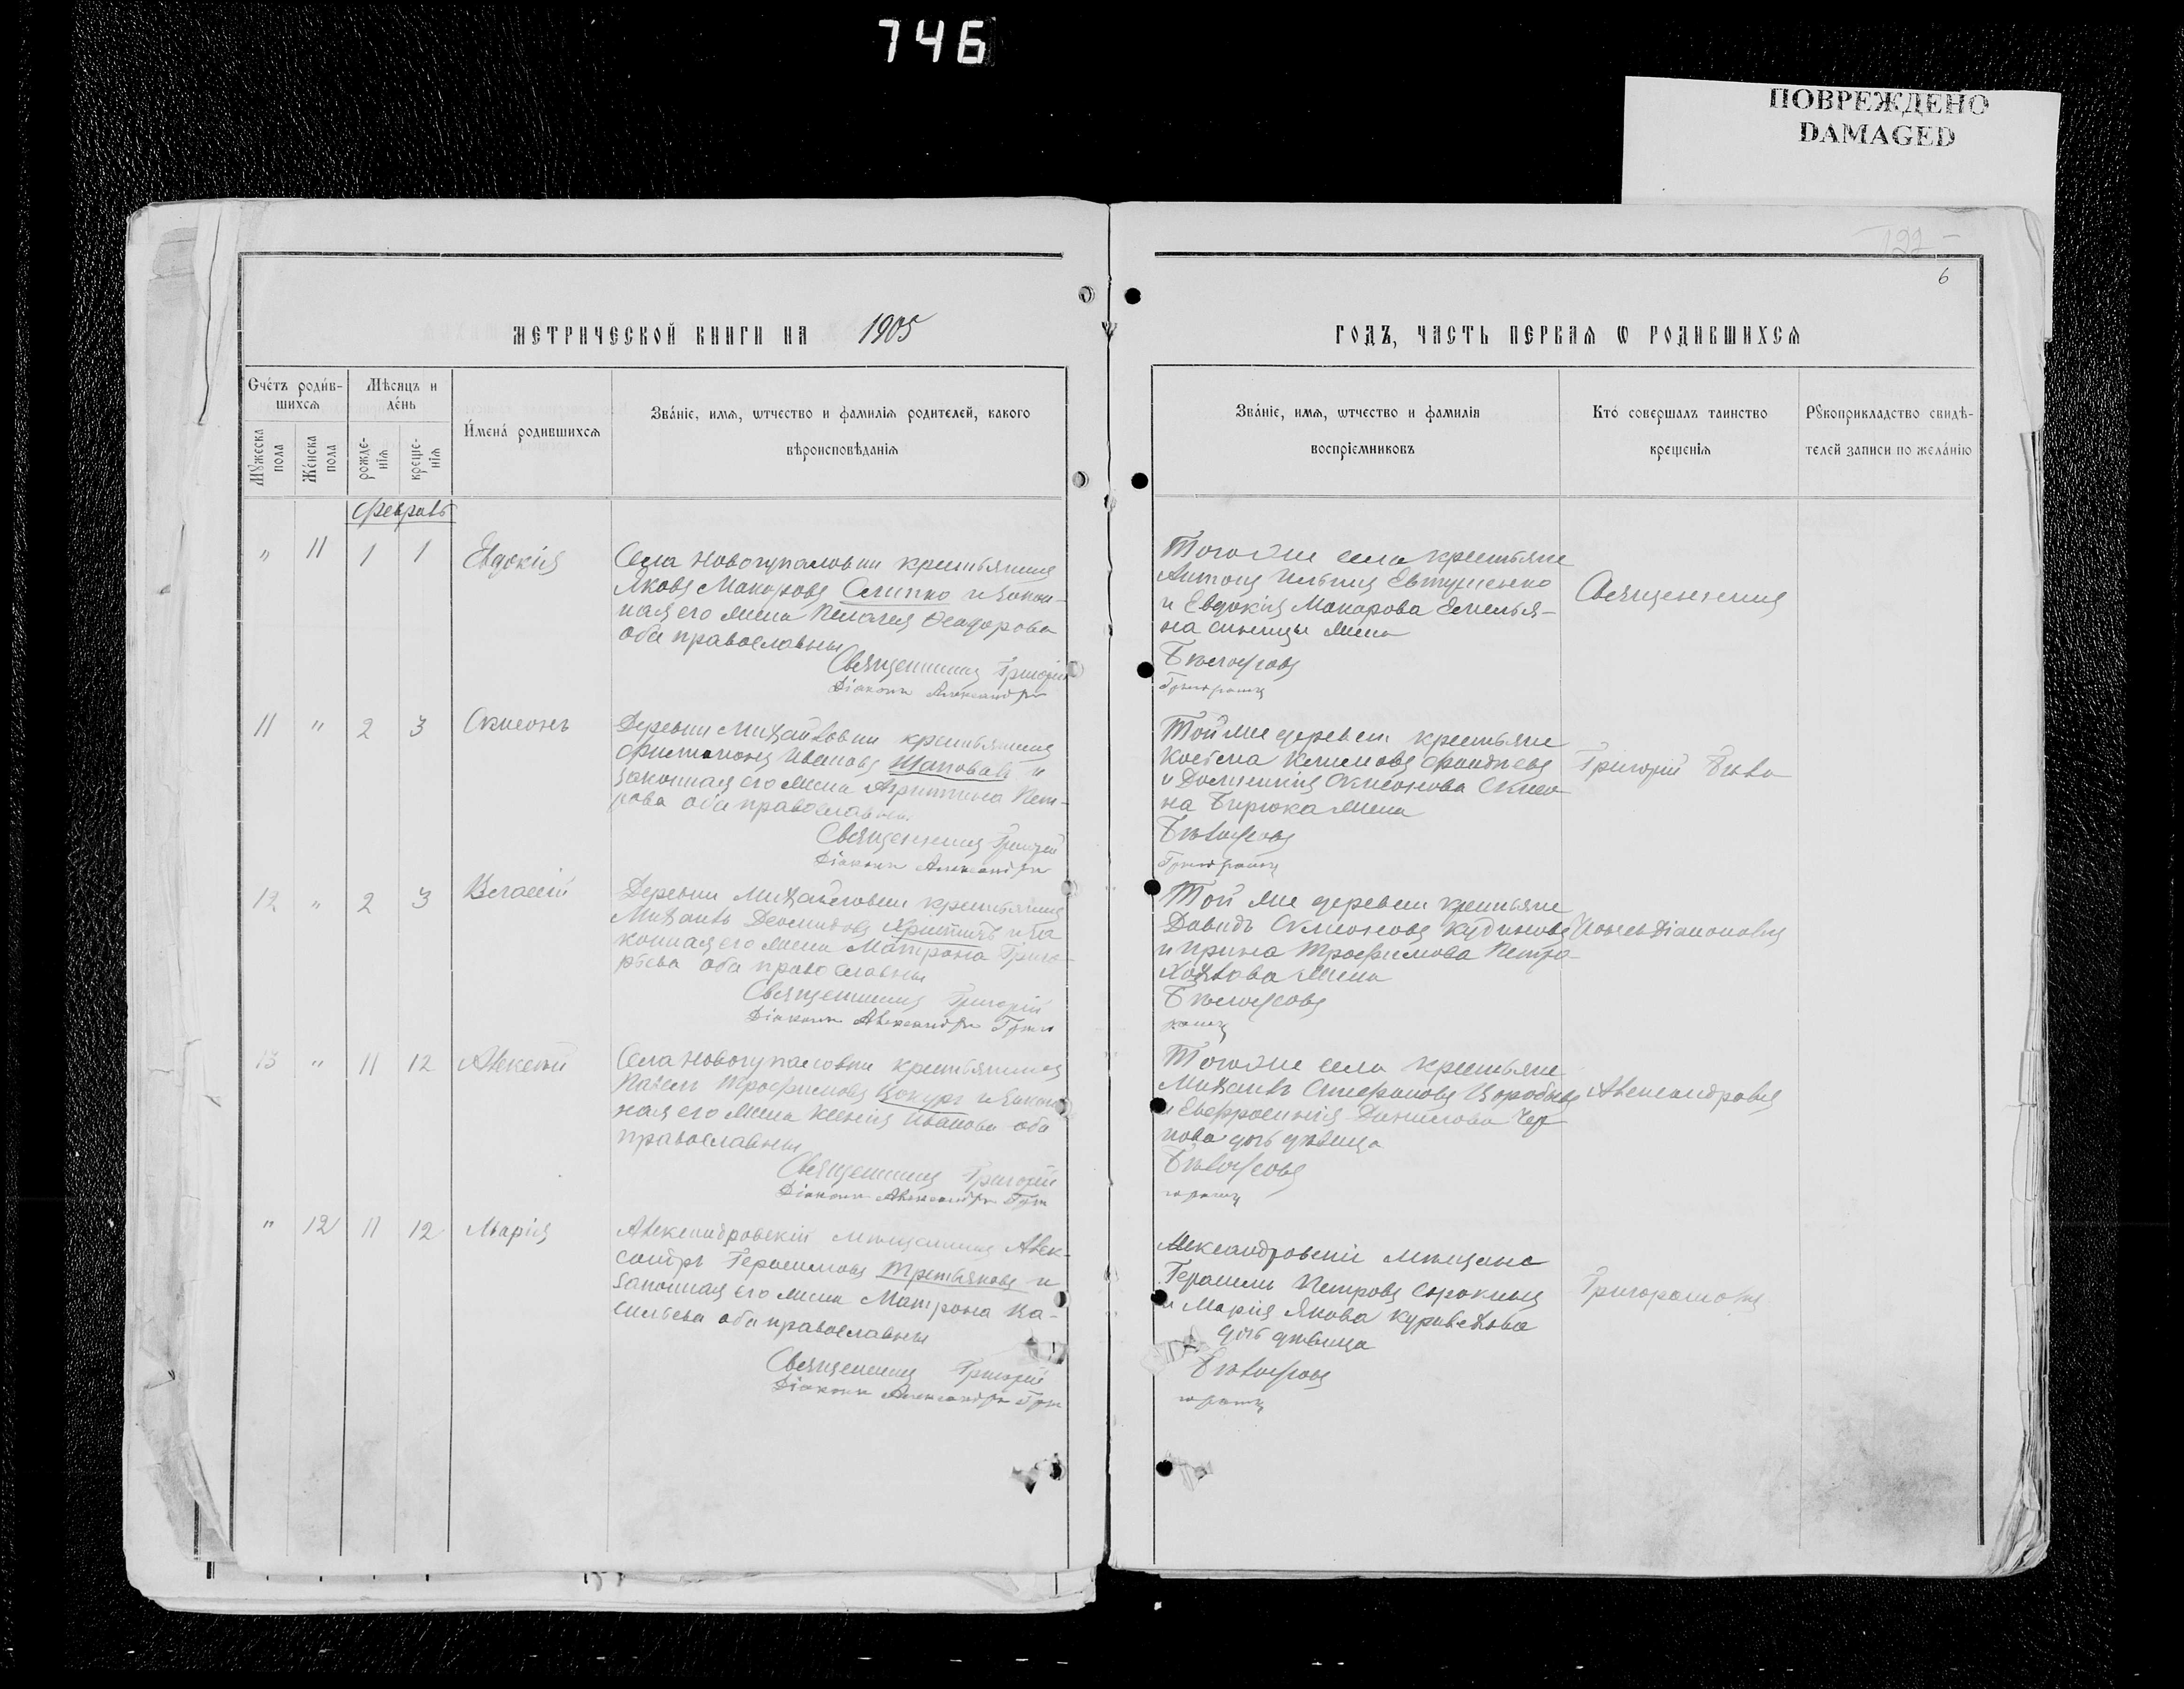 746
ПОВРЕЖДЕНО
DAMAGED
6
МЕТРИЧЕСКОЙ КНИГИ НА 1905
ГОДЪ, ЧАСТЬ ПЕРВАЯ Ѡ РОДИВШИХСЯ
Счетъ родив-
шихся
Мѣсяцъ и
день
Мужеска
пола
Женска
пола
рожде-
нія
креще-
нія
Имена родившихся
Званіе, имя, ѡтчество и фамилія родителей, какого
вѣроисповѣданія
Званіе, имя, ѡтчество и фамилія
воспріемниковъ
Кто совершалъ таинство
крещенія
Рукоприкладство свидѣ-
телей записи по желанію
Февраль
" 11 1 1 Евдокія
Села Новогупаловки крестьянинъ
Яковъ Макаровъ Слипко и закон-
ная его жена Пелагея Ѳеодорова
оба православны
Священникъ Григорій
Діаконъ Александръ
Того же села крестьяне
Антонъ Ильинъ Евтушенко
и Евдокія Макарова Емелья-
на Синицы жена
Бѣлоусовъ
Священникъ
11 " 2 3 Симеонъ
Деревни Михайловки крестьянинъ
Филимонъ Ивановъ Шаповалъ и
законная его жена Агриппина Пет-
рова оба православны
Священникъ Григорій
Діаконъ Александръ
Той же деревни крестьяне
Косьма Климовъ
и Домникія Симеонова Симео-
на Бирюка жена
Бѣлоусовъ
Григорій Бѣло
12 " 2 3 Власій
Деревни Михайловки крестьянинъ
Михаилъ Деомидовъ и за
конная его жена Матрона Григо-
рьева оба православны
Священникъ Григорій
Діаконъ Александръ
Той же деревни крестьяне
Давидъ Симеоновъ Кудиновъ
и Ирина Трофимова Петра
жена
Бѣлоусовъ
13 " 11 12 Алексѣй
Села Новогупаловки крестьянинъ
Павелъ Трофимовъ Цокуръ и закон
ная его жена Ксенія Иванова оба
православны
Священникъ Григорій
Діаконъ Александръ
Того же села крестьяне
Михаилъ Стефановъ
и Евфросинія Данилова Чер
нова дочь дѣвица
Бѣлоусовъ
Александровъ
" 12 11 12 Марія
Александровскій мѣщанинъ Алек-
сандръ Герасимовъ Третьяковъ и
законная его жена Матрона Ва-
сильева оба православны
Священникъ Григорій
Діаконъ Александръ
Александровскіе мѣщане
Герасимъ Петровъ Сорокинъ
и Марія Якова
дочь дѣвица
Бѣлоусовъ